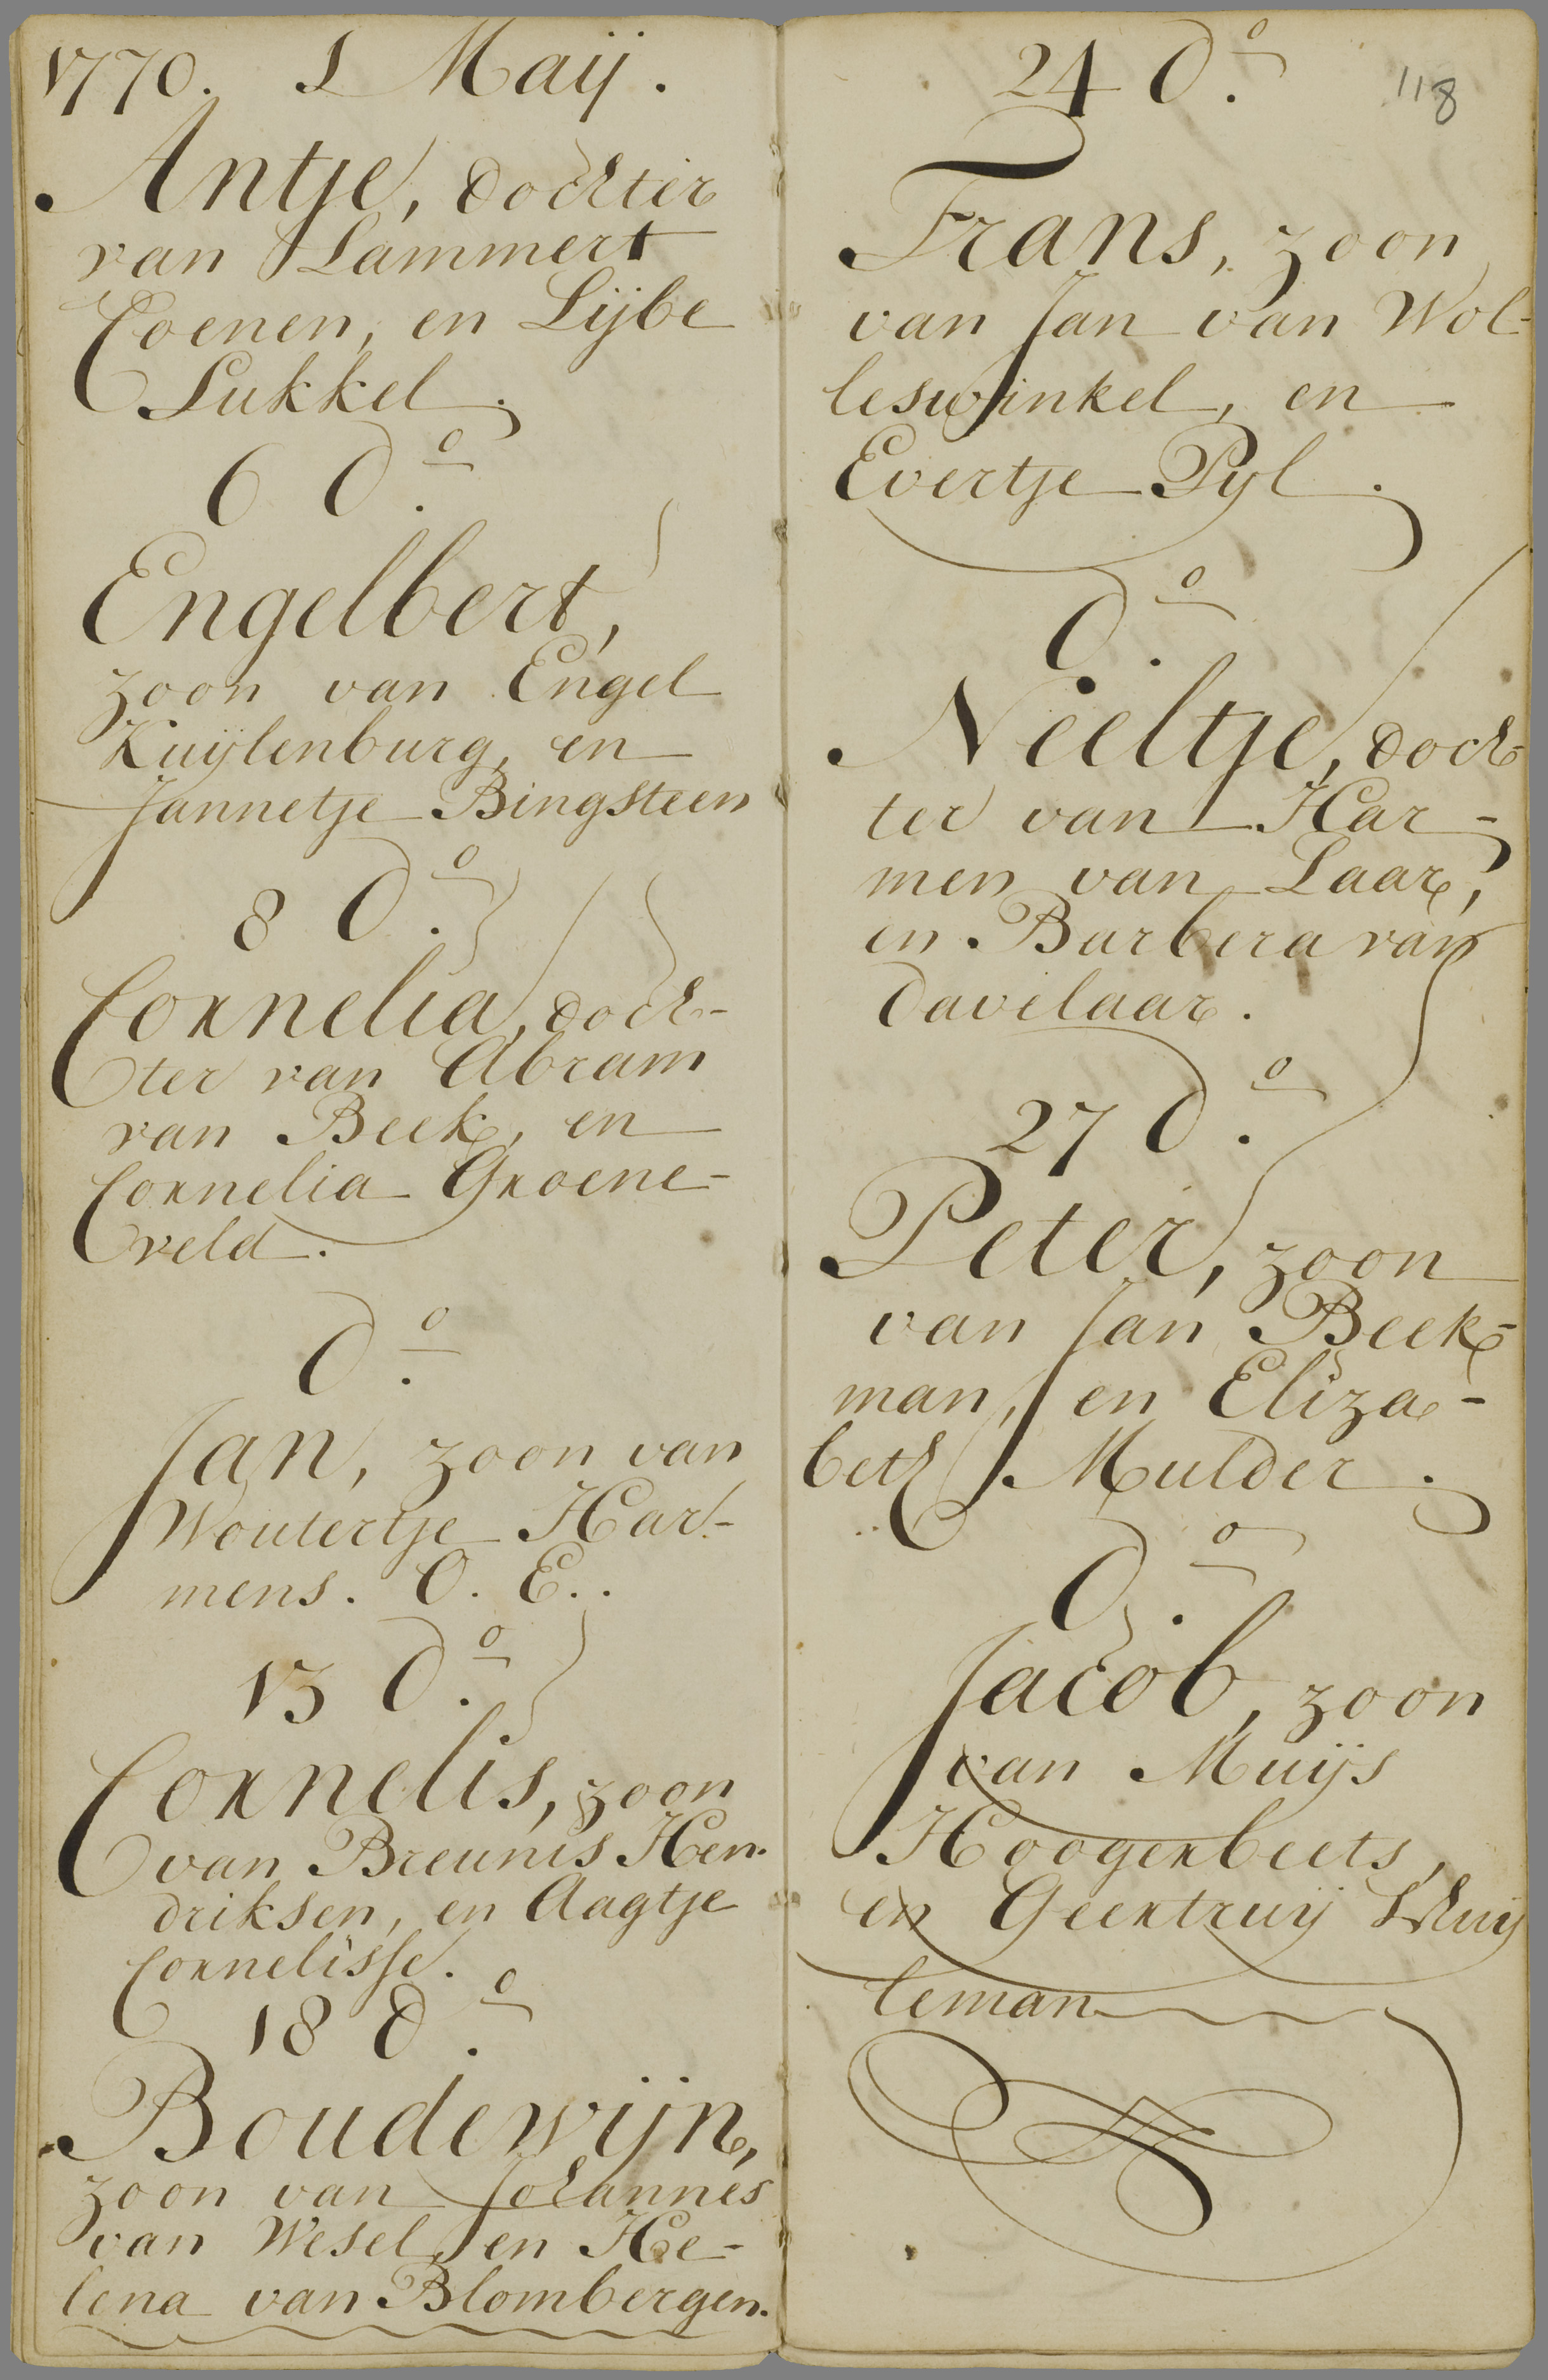 1770. 1 Maij.
Antje, dochter
van Lammert
Coenen, en Lijbe
Lukkel.
6 do.
Engelbert,
zoon van Engel
Kuijlenburg, en
Jannetje Bingsteen
8 do.
Cornelia, doch-
ter van Abram
van Beek, en
Cornelia Groene-
veld.
do.
Jan, zoon van
Woutertje Har-
mens. O. E.
13 do.
Cornelis, zoon
van Breunis Hen-
driksen, en Aagtje
Cornelisse.
18 do.
Boudewijn,
zoon van Johannes
van Wesel, en He-
lena van Blombergen.
24 do. 118
Frans, zoon
van Jan van Wol-
leswinkel, en
Evertje Pijl.
do.
Neeltje, doch-
ter van Har-
men van Laar,
en Barbera van
Davelaar.
27 do.
Peter, zoon
van Jan Beek-
man, en Eliza-
beth Mulder.
do.
Jacob, zoon
van Muijs
Hoogerbeets,
en Geertruij
leman